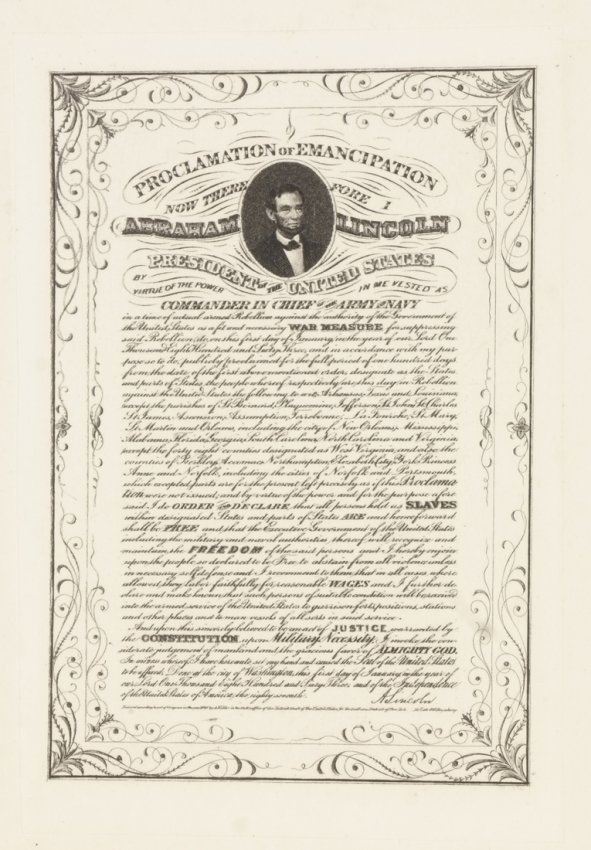 PROCLAMATION OF EMANCIPATION
NOW THERE FORE I
ABRAHAM LINCOLN
PRESIDENT OF THE UNITED STATES
BY VIRTUE OF THE POWER IN ME VESTED AS
COMMANDER IN CHIEF OF THE ARMY AND NAVY
in a time of actual armed Rebellion against the authority of the Government of
the United States as a fit and necessary WAR MEASURE for suppressing
said Rebellion, do, on this first day of January, in the year of our Lord One
Thousand Eight Hundred and Sixty Three, and in accordance with my pur-
pose so to do, publicly proclaimed for the full period of one hundred days
from the date of the first above mentioned order, designate as the States
and parts of States, the people whereof respectively are this day in Rebellion
against the United States the following to wit: Arkansas, Texas and Louisiana
except the parishes of St Bernard, Plaquemine, Jefferson, St John, St Charles
St James, Ascension, Assumption, Terrebonne, La Fourche, St Mary,
St Martin and Orleans, including the city of New Orleans, Mississippi,
Alabama, Florida, Georgia, South Carolina, North Carolina and Virginia,
except the forty eight counties designated as West Virginia, and also the
counties of Berkley, Accomac, Northampton, Elizabeth City, York, Princess
Anne and Norfolk, including the cities of Norfolk and Portsmouth,
which excepted parts are for the present left precisely as if this Proclama
tion were not issued; and by virtue of the power and for the purpose afore
said I do ORDER AND DECLARE that all persons held as SLAVES
within designated States and parts of States ARE and henceforward
shall be FREE and that the Executive Government of the United States
including the military and naval authorities thereof will recognize and
maintain the FREEDOM of the said persons and I hereby enjoin
upon the people so declared to be Free to abstain from all violence unless
in necessary self defense and I recommend to them that in all cases where
allowed, they labor faithfully for reasonable WAGES and I further de-
clare and make known that such persons of suitable condition will be received
into the armed service of the United States to garrison forts, positions, stations
and other places and to man vessels of all sorts in said service.
And upon this sincerely believed to be an act of JUSTICE, warranted by
the CONSTITUTION, upon Military Necessity, I invoke the con-
siderate judgement of mankind and the gracious favor of ALMIGHTY GOD.
In witness whereof I have hereunto set my hand and caused the Seal of the United States
to be affixed. Done at the city of Washington, this first day of January in the year of
our Lord One Thousand Eight Hundred and Sixty Three, and of the Independence
of the United States of America, the eighty seventh
A. Lincoln